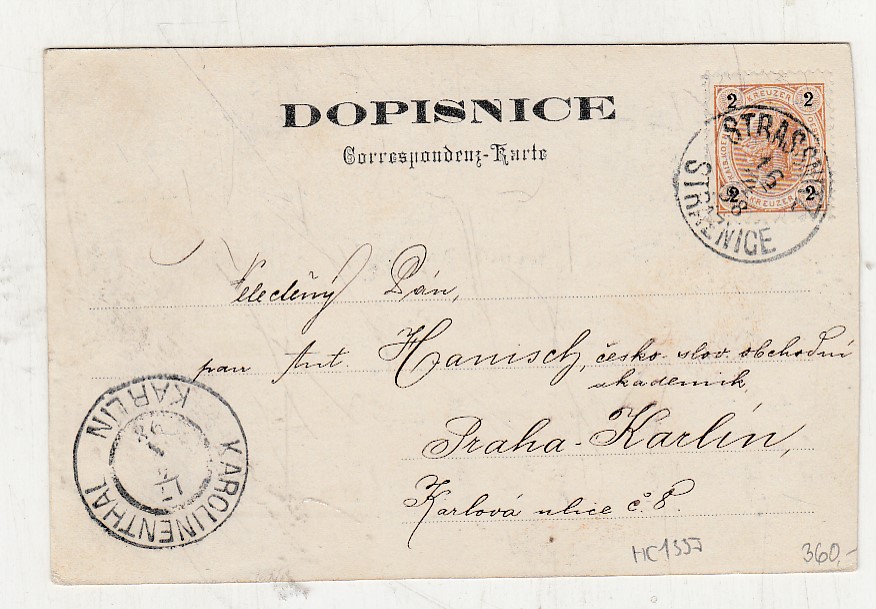 DOPISNICE
Correspondenz-Karte
2 KREUZER 2
2 KREUZER 2
STRASSNITZ
STRAŽNICE
98
Veleděný Pán,
pan Ant. Hanisch, česko-slov. obchodní
akademik,
Praha-Karlín,
Karlova ulice č. 8.
KARLIN
KAROLINENTHAL
HC1557
360,-